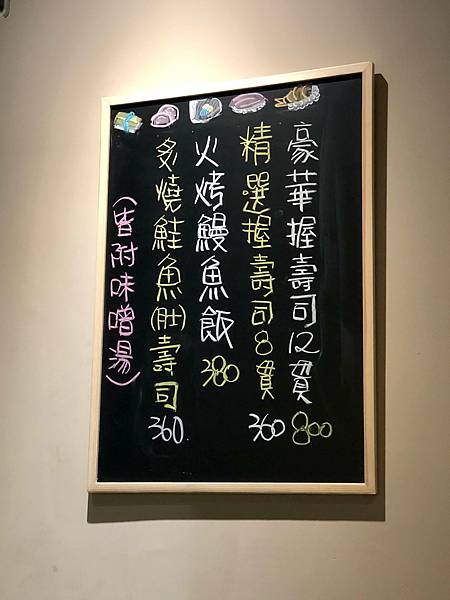 豪華握壽司12貫 800
精選握壽司8貫 360
火烤鰻魚飯 380
炙燒鮭魚(肚)壽司 360
(皆附味噌湯)